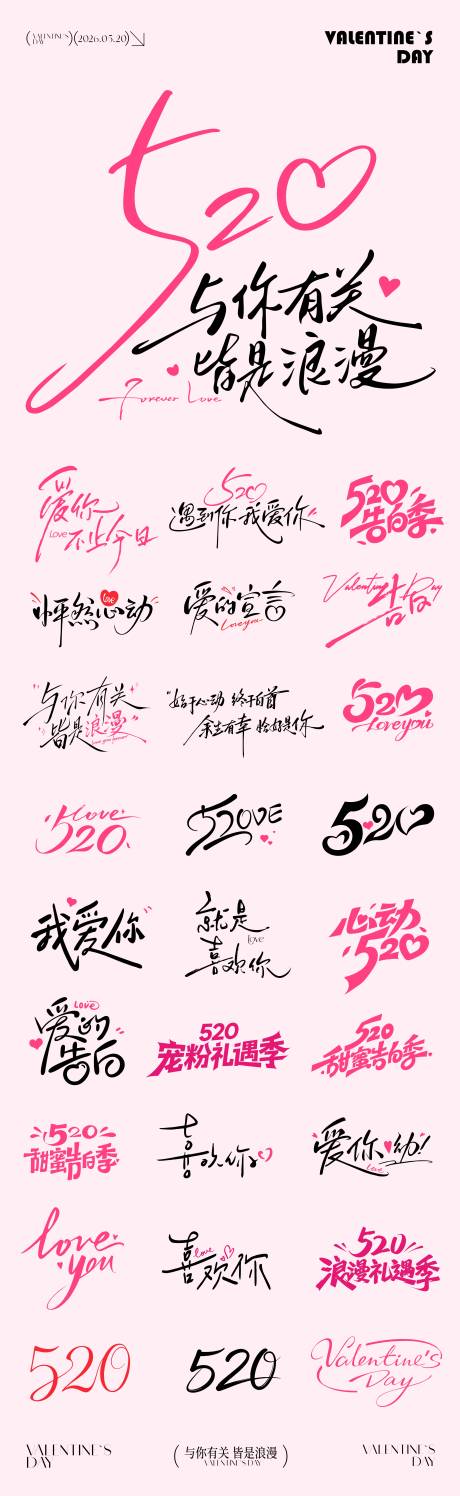 (VALENTINE'S DAY)(2026.05.20)
VALENTINE`S
DAY
520
与你有关
皆是浪漫
Forever Love
爱你
Love 不止今日
520
遇到你 我爱你
520
告白季
Love
怦然心动
爱的宣言
Love you
Valentine Day
告白
与你有关
皆是浪漫
"始于心动 终于白首
余生有幸 恰好是你"
520
Love you
Love
520
520VE
520
我爱你
就是
Love
喜欢你
心动
520
Love
爱的
告白
520
宠粉礼遇季
520
甜蜜告白季
520
甜蜜告白季
喜欢你
爱你 动!
Love
love
you
喜欢你
love
520
浪漫礼遇季
520
520
Valentine's
Day
VALENTINE`S
DAY
(与你有关 皆是浪漫)
VALENTINE'S DAY
VALENTINE`S
DAY